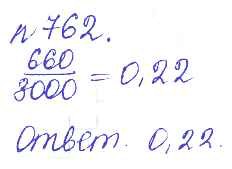 №762.
660/3000 = 0,22
Ответ. 0,22.